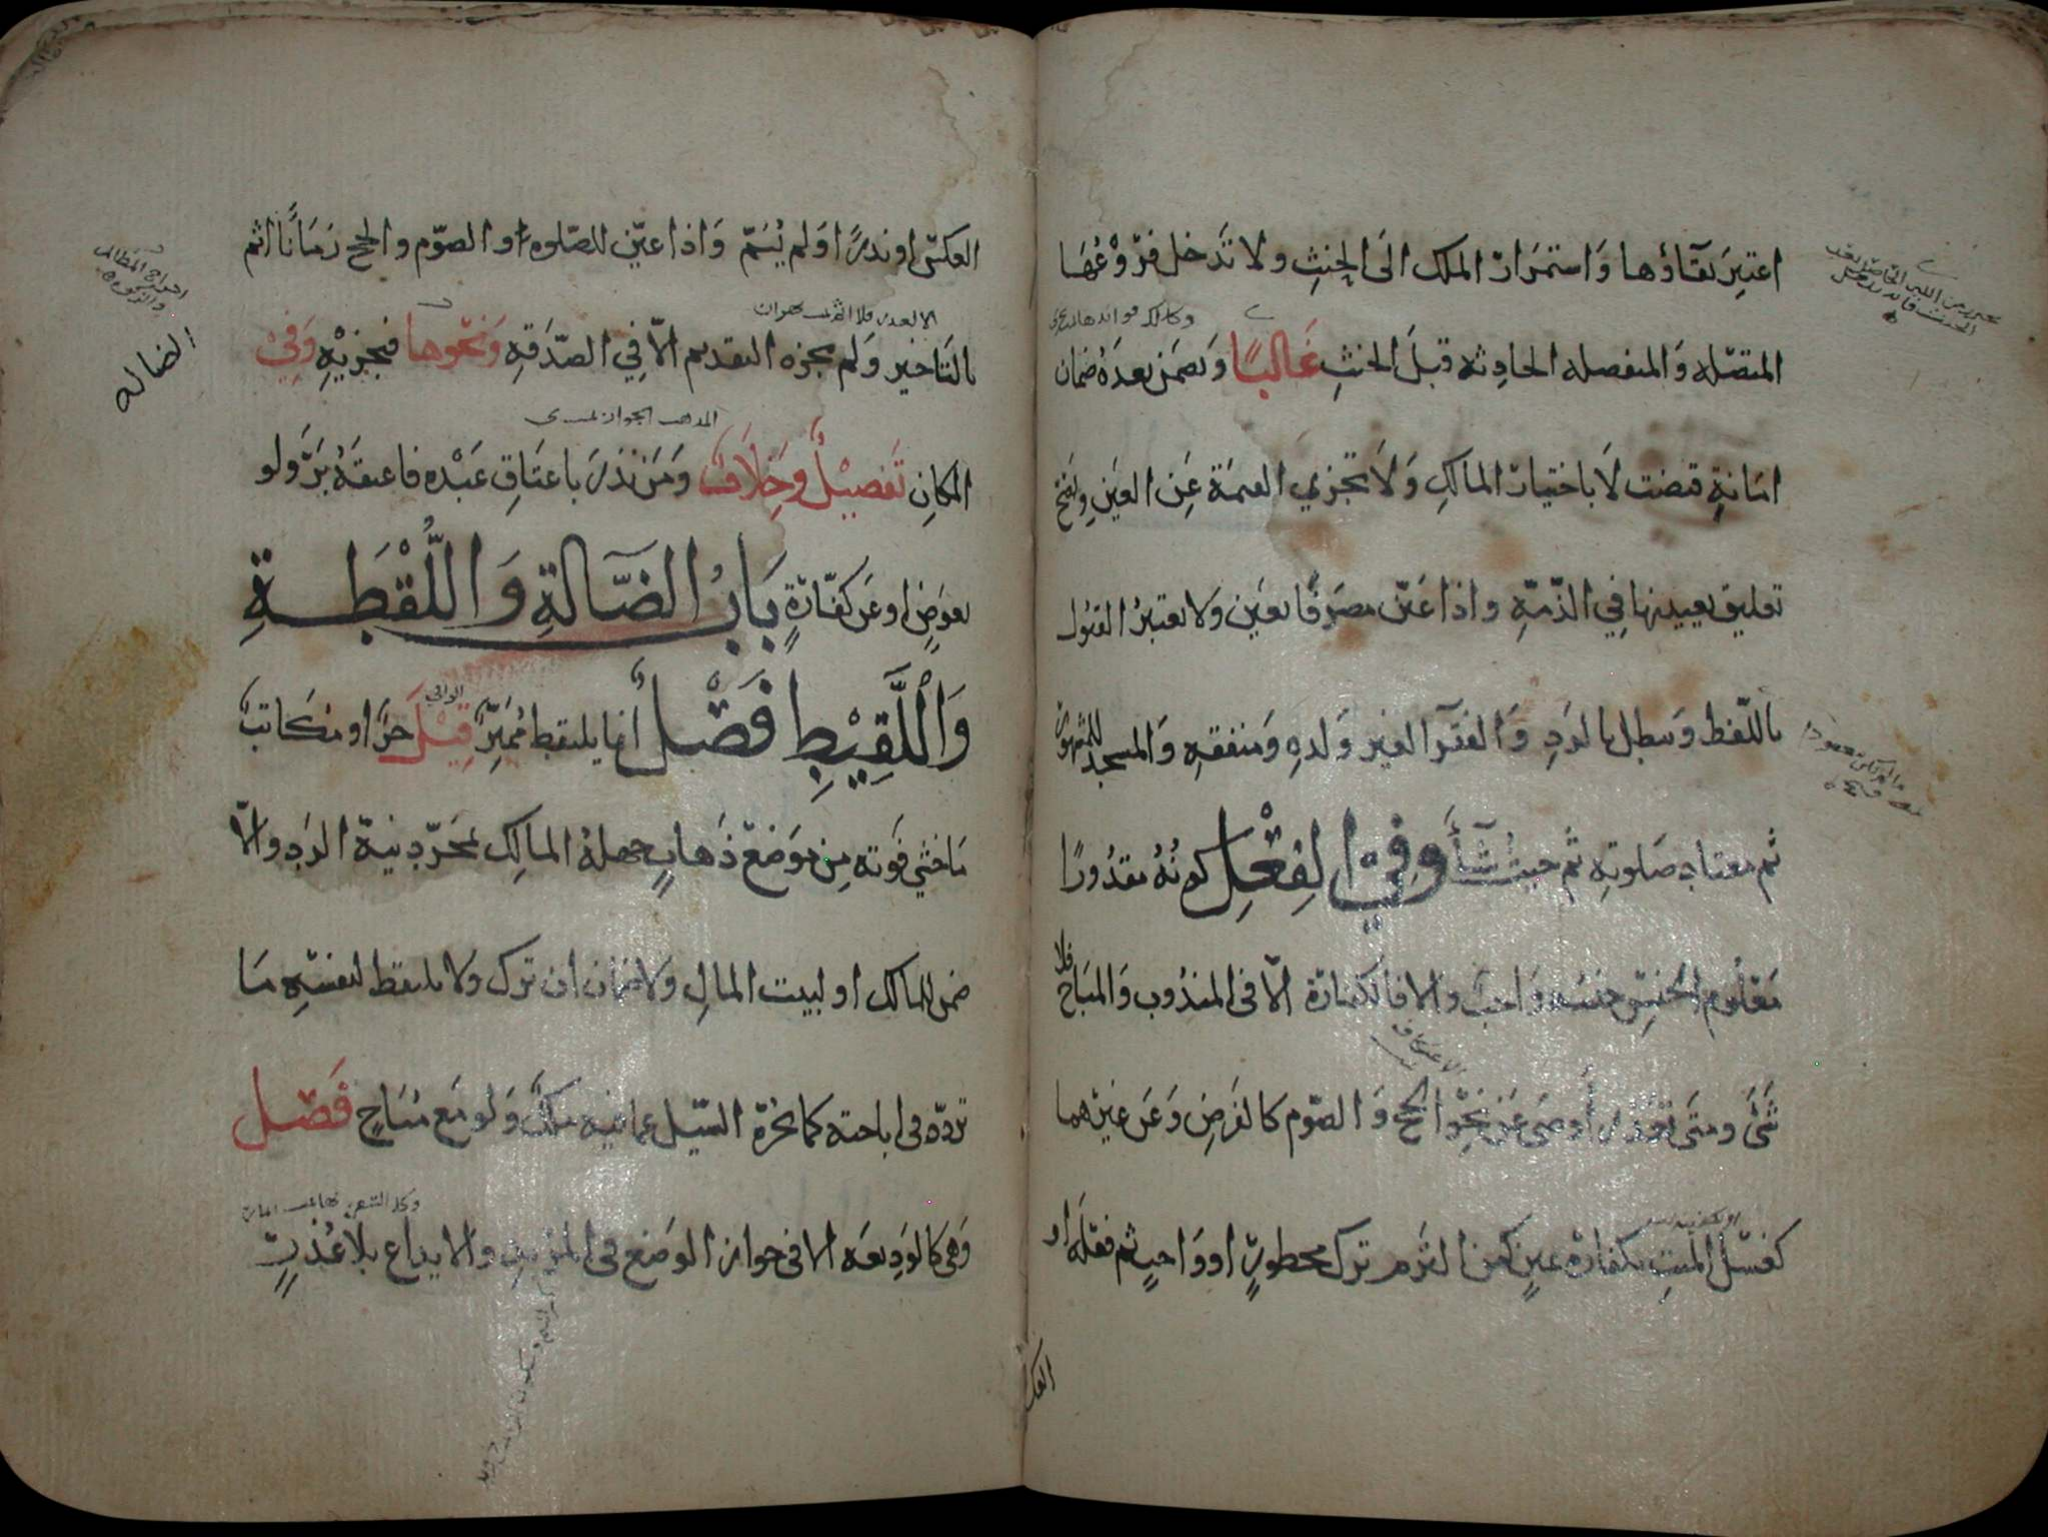 اعتبر بقاؤها واستمرار الملك الى الحنث ولا تدخل فروعها
المتصله والمنفصله الحادثه قبل الحنث غالبا ويضمن بعده ضمان
امانة قبضت لا باختيار المالك ولا تجزي القيمة عن العين ويصح
تعليق تعيينها في الذمة واذا عين مصرفا تعين ولا يعتبر القبول
باللفظ ويبطل بالرد والفقرا لغير ولده ومنفقه والمسجد للمشهور
ثم معتاد صلوته ثم حيث شآء وفي الفعل كونه مقدورا
معلوم الجنس جنسه واجب والا فالكفارة الا في المندوب والمباح فلا
شئ ومتى تعذر اوصى عن نحو الحج والصوم كالفرض وعن غيرهما
كغسل الميت بكفارة يمين كمن التزم ترك محظور او واجب ثم فعله او
العكس
العكس او نذرا ولم يسم واذا عين للصلوة او الصوم والحج زمانا اثم
بالتاخير ولم يجزه التقديم الا في الصدقه ونحوها فيجزيه وفي
المكان تفصيل وخلاف ومن نذر باعتاق عبده فاعتقه بر ولو
بعوض او عن كفارة باب الضالة واللقطة
واللقيط فصل انما يلتقط مميز قيل حر او مكاتب
ما خشي فوته من موضع ذهاب جهله المالك بمجرد نية الرد والا
ضمن للمالك او لبيت المال ولا ضمان ان ترك ولا يلتقط لنفسه ما
تردد في اباحته كما بجره السيل عما فيه ملك ولو مع مباح فصل
وهي كالوديعه الا في جواز الوضع في المربد والايداع بلا عذر
الضاله